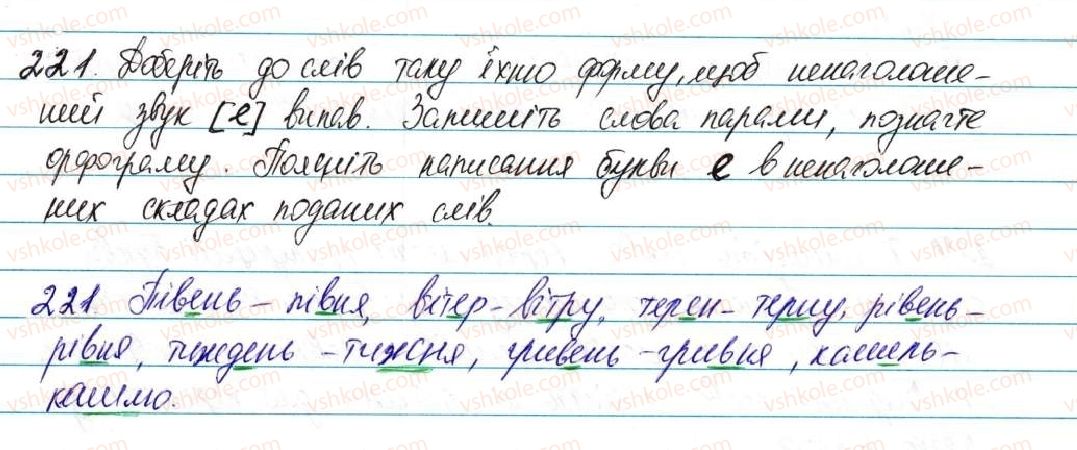 221. Доберіть до слів таку їхню форму, щоб ненаголоше-
ний звук [е] випав. Запишіть слова парами, позначте
орфограму. Поясніть написання букви е в ненаголоше-
них складах поданих слів.
221. Півень – півня, вітер – вітру, терен – терну, рівень –
рівня, тиждень – тижня, гривень – гривня, кашель –
кашлю.